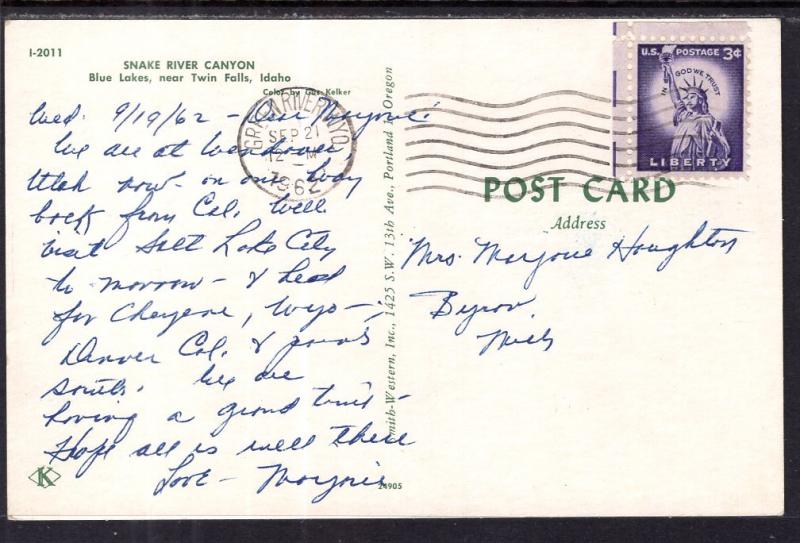 I-2011
SNAKE RIVER CANYON
Blue Lakes, near Twin Falls, Idaho
Color by Gus Kelker
Wed. 9/19/62 - Dear Marjorie:
We are at Wendover,
Utah now - on our way
back from Cal. Well
visit Salt Lake City
to morrow - & head
for Cheyene, Wyo -,
Denver Col. & points
south. We are
having a grand time -
Hope all is well there
Love -
K
24905
Smith-Western, Inc., 1425 S.W. 13th Ave., Portland, Oregon
GREEN RIVER WYO.
SEP 21
12 - M
1962
U.S. POSTAGE 3¢
IN GOD WE TRUST
LIBERTY
POST CARD
Address
Mrs. Marjorie Houghton
Byron,
Mich